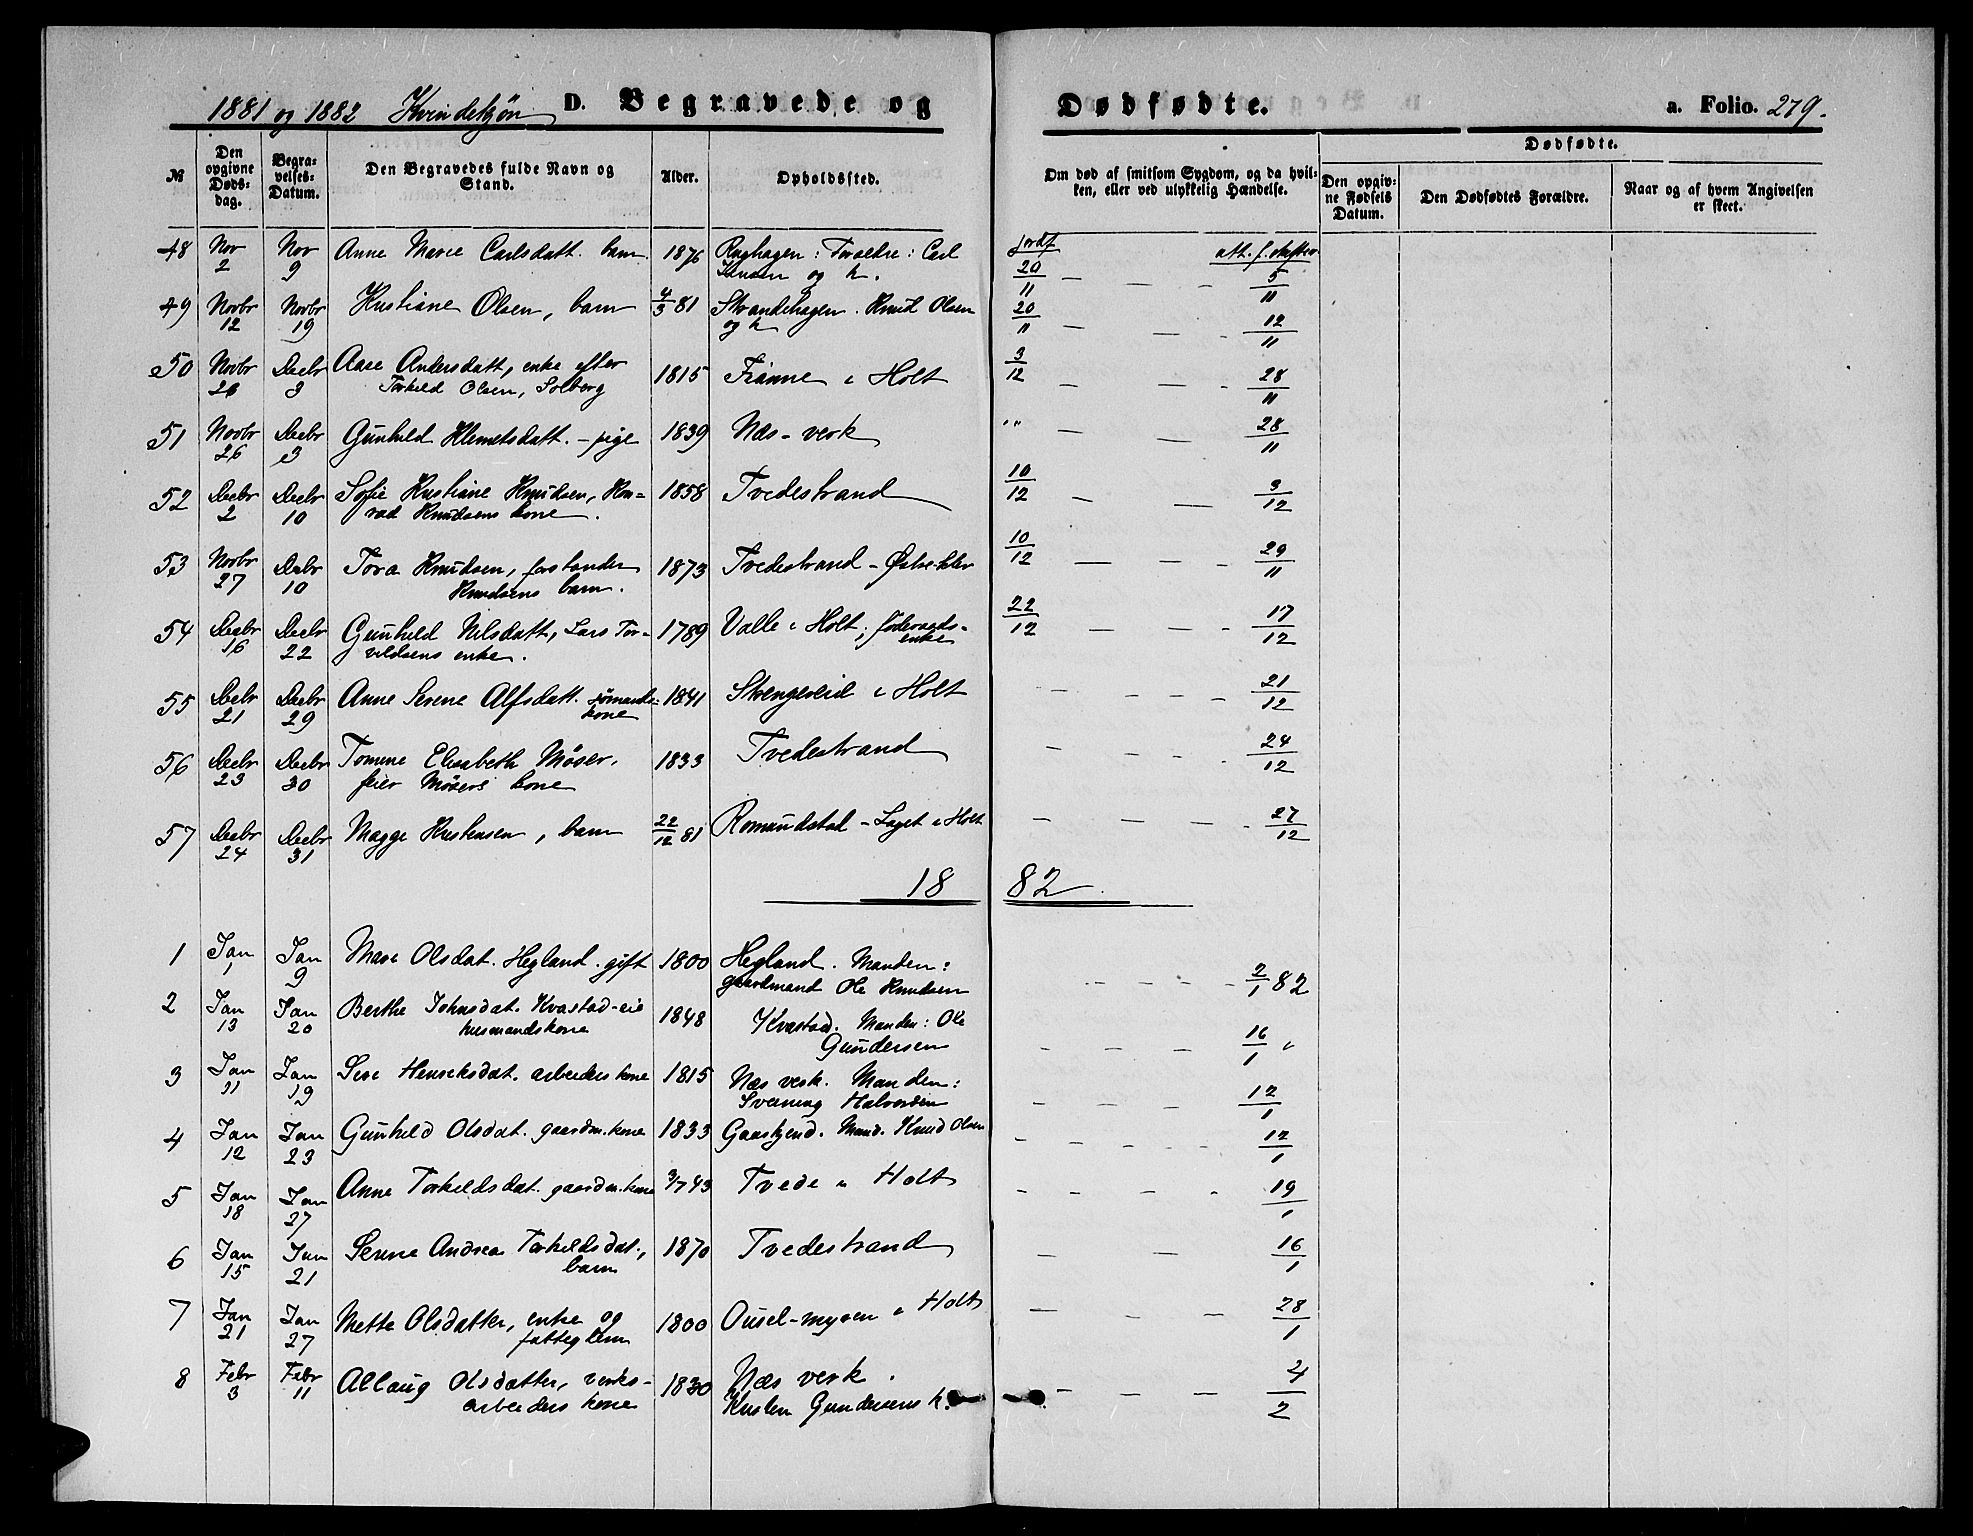 1881 og 1882 Kvindekjøn D. Begravede og Dødfødte. a. Folio. 279.
№ Den opgivne Døds-dag. Begra-velses-Datum. Den Begravedes fulde Navn og Stand. Alder. Opholdssted. Om død af smitsom Sygdom, og da hvil-ken, eller ved ulykkelig Hændelse. Dødfødte. Den opgiv-ne Fødsels Datum. Den Dødfødtes Forældre. Naar og af hvem Angivelsen er skeet.
48 Nov 2 Nov 9 Anne Marie Carlsdatt. barn 1876 Roghagen: Foraeldre: Carl jordf att. f. skifter
Jensen og h. 20/11 — — — 5/11
49 Novbr 12 Novbr 19 Kristiane Olsen, barn 4/3 81 Strandehagen. Knud Olsen
og h 20/11 — — - 12/11
50 Novbr 26 Decbr 3 Aase Andersdatt, enke efter
Torkild Olsen, Solberg 1815 Fianne i Holt 3/12 — — - 28/11
51 Novbr 26 Decbr 3 Gunhild Klemetsdatt. - pige 1839 Næs - verk " — — 28/11
52 Decbr 2 Decbr 10 Sofie Kristiane Knudsen, Kon-
rad Knudsens kone. 1858 Tvedestrand 10/12 — — 3/12
53 Novbr 27 Decbr 10 Tora Knudsen, forstander
Knudsens barn. 1873 Tvedestrand - Østrekler 10/12 — — - 29/11
54 Decbr 16 Decbr 22 Gunhild Nilsdatt, Lars Tor-
vildsens enke. 1789 Valle i Holt; föderaads-
enke 22/12 — — - 17/12
55 Decbr 21 Decbr 29 Anne Serene Alfsdatt. sømands-
kone 1841 Skengereid i Holt — — — 21/12
56 Decbr 23 Decbr 30 Tomine Elisabeth Møser,
feier Møsers kone 1833 Tvedestrand — — - 24/12
57 Decbr 24 Decbr 31 Magge Kristensen, barn 22/12 81 Romundstad - Laget i Holt — — — - 27/12
1882
1 Jan 1 Jan 9 Mari Olsdat. Hegland. gift 1800 Hegland. Manden:
gaardmand Ole Knudsen — — — - 2/1 82
2 Jan 13 Jan 20 Berthe Johnsdat. Kvastad-eie
husmandskone 1848 Kvastad. Manden: Ole
Gundersen — — — 16/1 "
3 Jan 11 Jan 19 Sise Henriksdat. arbeiders kone 1815 Næs verk. Manden:
Sverning Halvorsen — — — - 12/1
4 Jan 12 Jan 23 Gunhild Olsdat. gaardm. kone 1833 Gaaskjend. Mand. Knud Olsen — — — - 12/1
5 Jan 18 Jan 27 Anne Torkildsdat. gaardm. kone 3/7 43 Tvede i Holt — — - - 19/1
6 Jan 15 Jan 21 Serine Andrea Torkildsdat.,
barn 1870 Tvedestrand — — 16/1
7 Jan 21 Jan 27 Mette Olsdatter, enke og
fattiglem 1800 Ousel-myren i Holt — — — 28/1
8 Febr 3 Febr 11 Allaug Olsdatter, verks-
arbeiders kone 1830 Næs verk.
Kristen Gundersens k. — — — 4/2